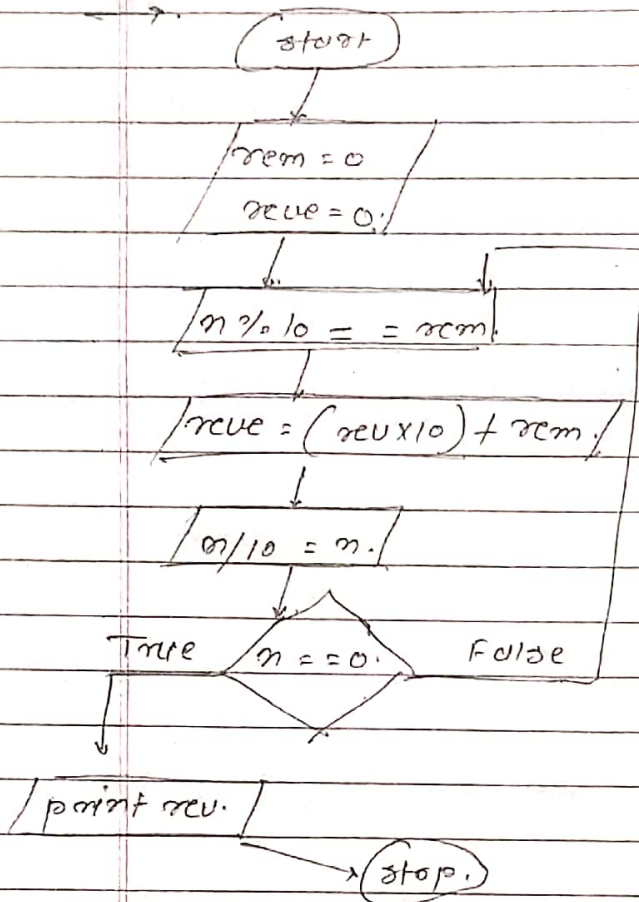 start
rem = 0
reve = 0.
n % 10 = = rem.
reve = (rev x 10) + rem.
n/10 = n.
True n = = 0. False
print rev.
stop.